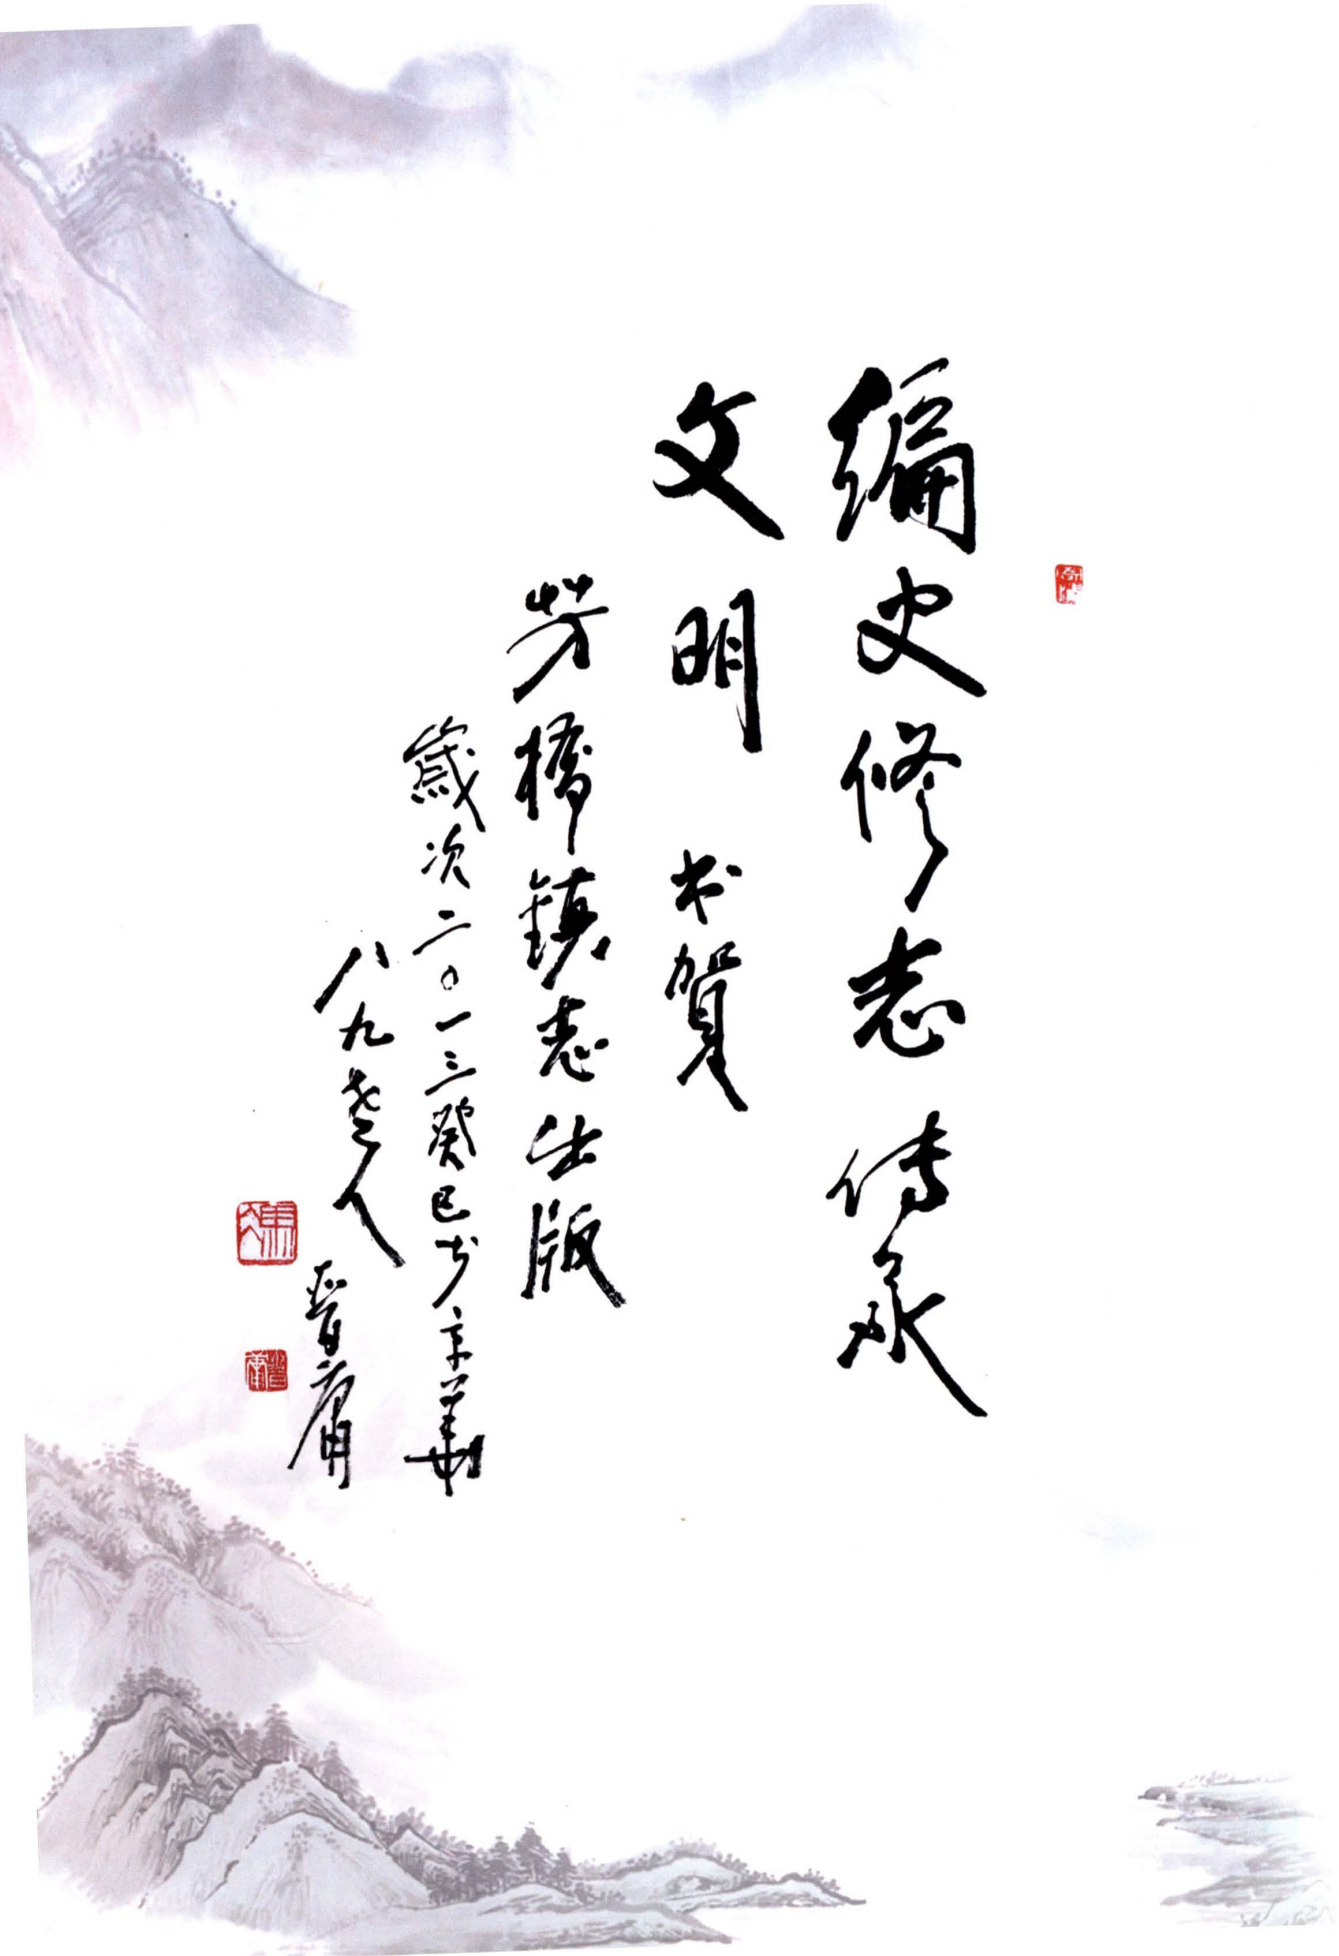 编史修志 传承
文明 书贺
芳桥镇志出版
岁次二〇一三癸巳书京华
八九老人
晋庸